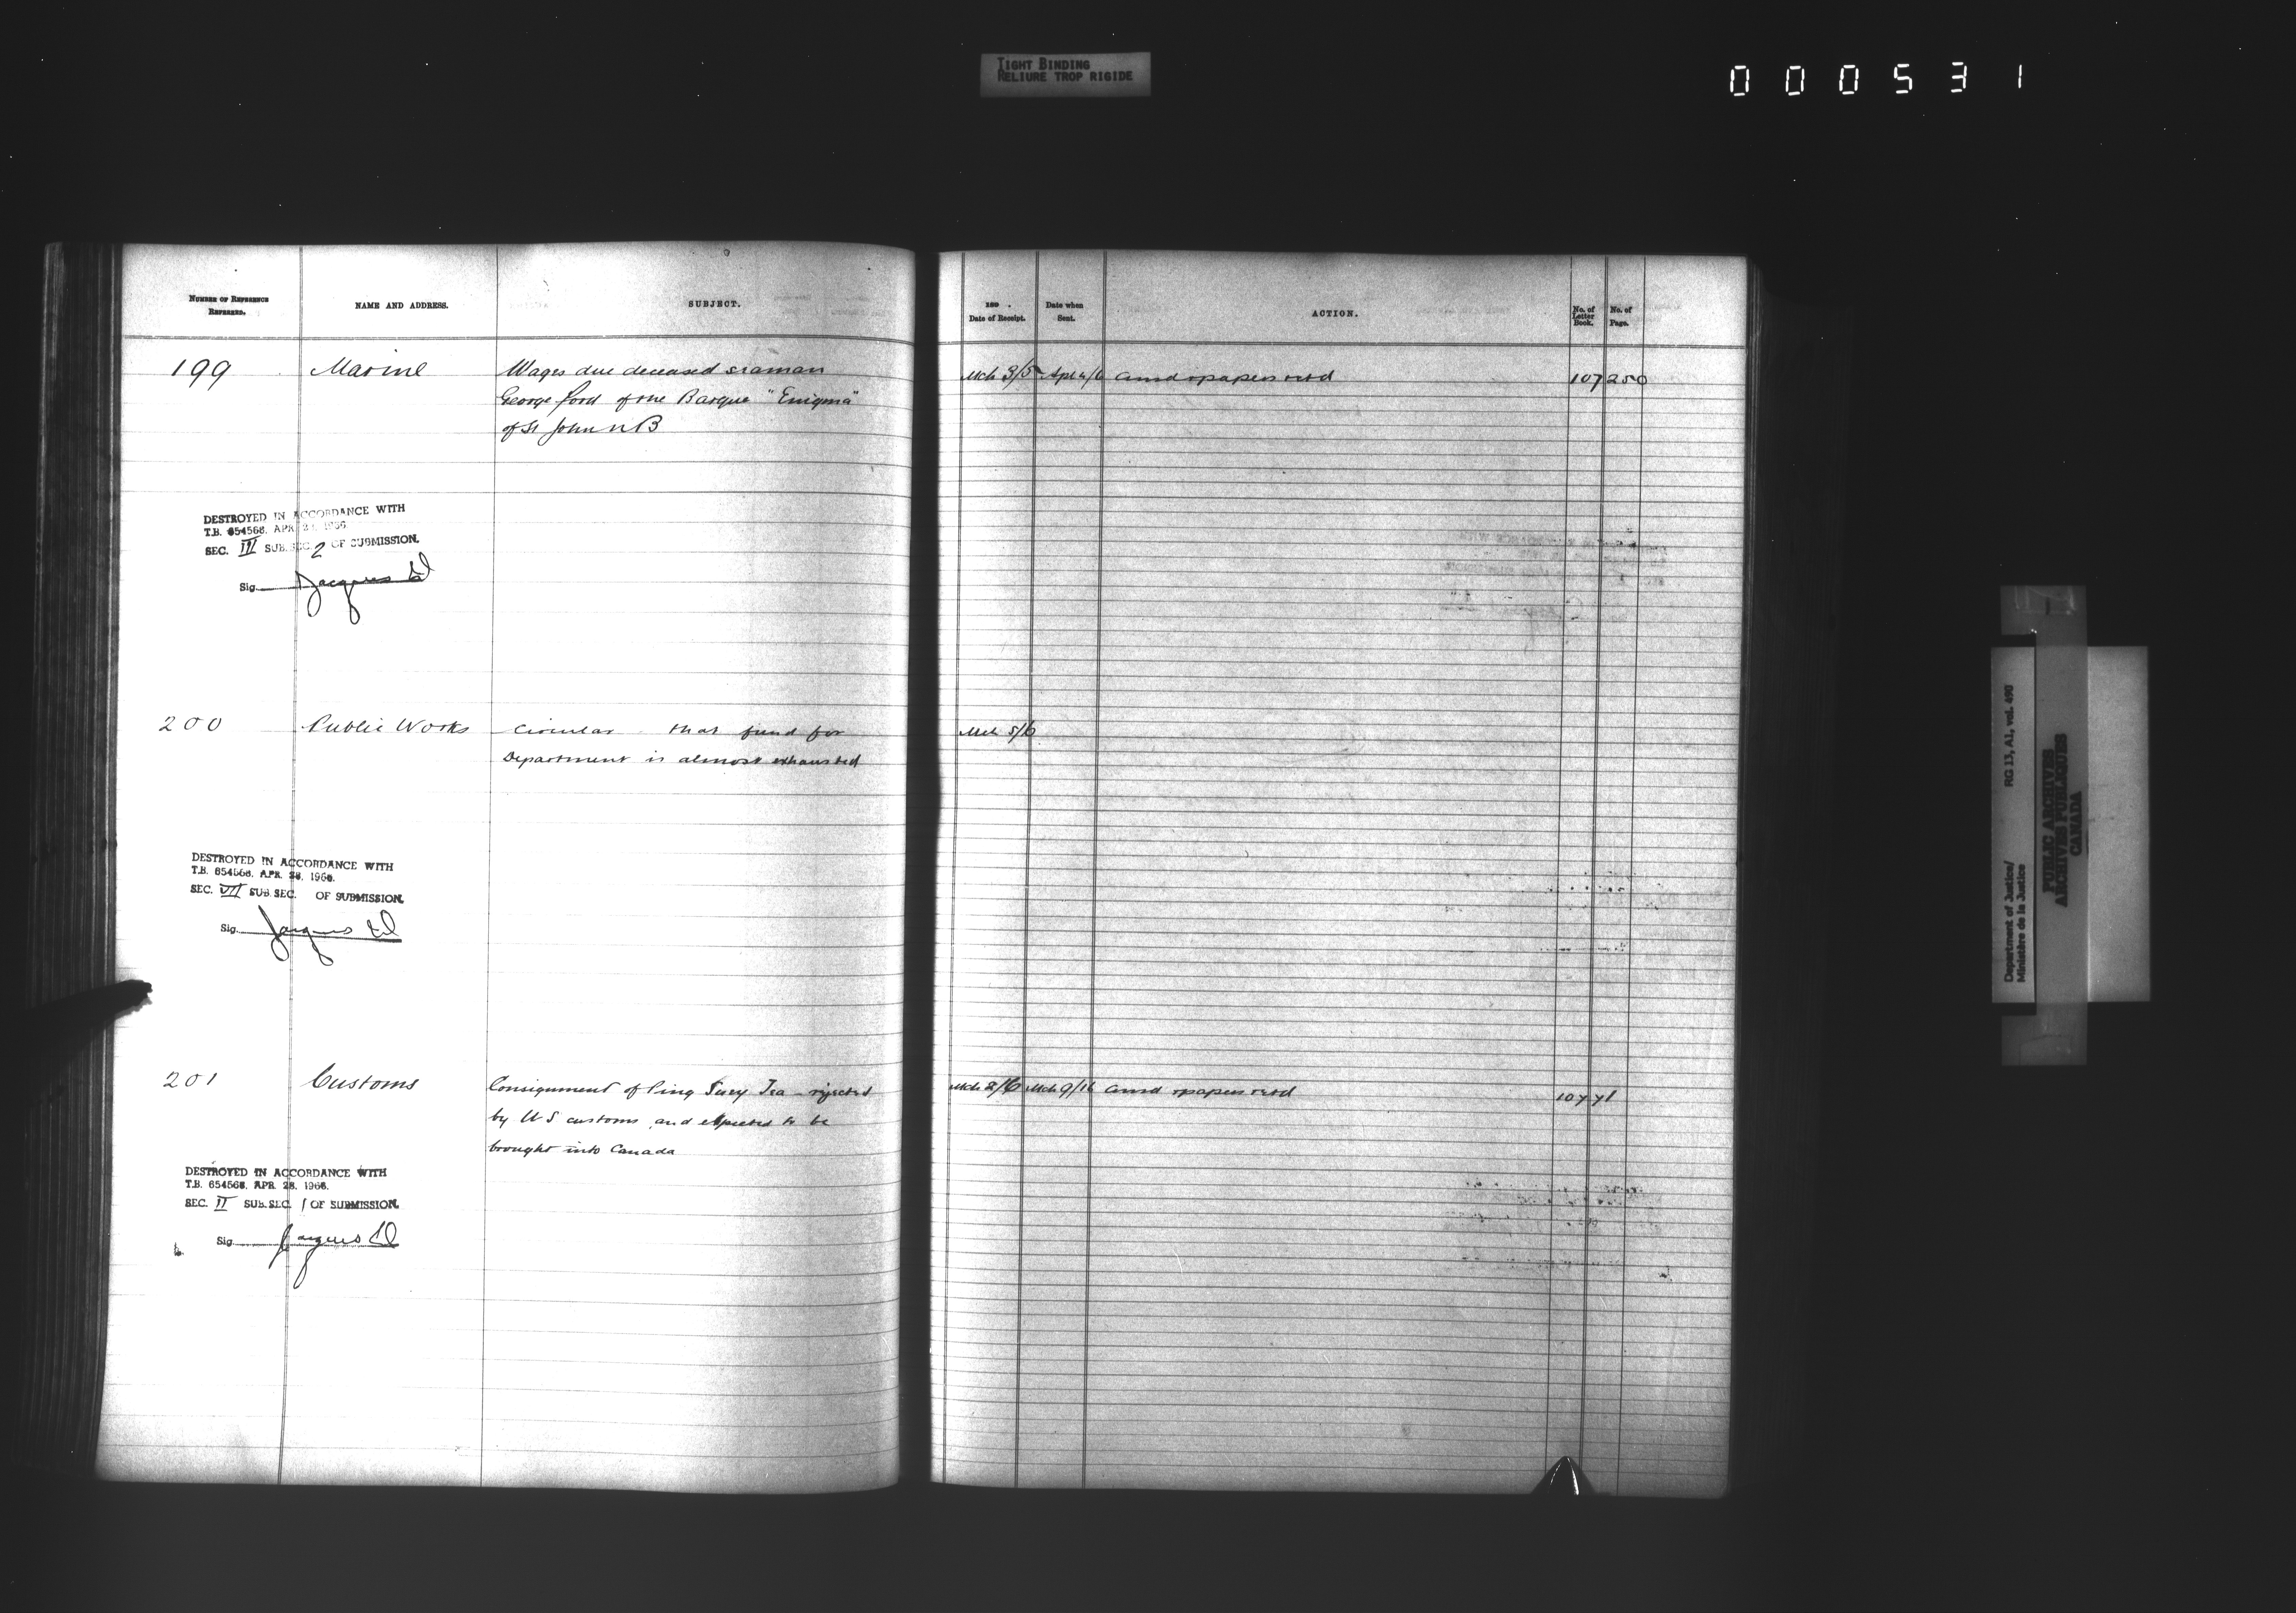 TIGHT BINDING
RELIURE TROP RIGIDE
000531
NUMBER OF REFERENCE REFERRED.
NAME AND ADDRESS.
SUBJECT.
189 .
Date of Receipt.
Date when Sent.
ACTION.
No. of Letter Book.
No. of Page.
199 Marine Wages due deceased seaman
George Ford of the Barque "Enigma"
of St John N B
Mch 3/5 Apl 4/6 ansd & papers retd 107 250
DESTROYED IN ACCORDANCE WITH
T.B. 654568, APR 28, 1966.
SEC. III SUB. SEC. 2 OF SUBMISSION.
Sig. Jacques
200 Public Works Circular that fund for
Department is almost exhausted
Mch 5/6
DESTROYED IN ACCORDANCE WITH
T.B. 654568, APR. 28, 1966.
SEC. VII SUB. SEC. OF SUBMISSION.
Sig. Jacques
201 Customs Consignment of Ping Suey Tea - rejected
by U S customs and expected to be
brought into Canada
Mch 2/6 Mch 9/16 ansd & papers retd 107 71
DESTROYED IN ACCORDANCE WITH
T.B. 654568, APR. 28, 1966.
SEC. II SUB. SEC. 1 OF SUBMISSION.
Sig. Jacques
Department of Justice/
Ministère de la Justice
RG 13, A1, vol. 490
PUBLIC ARCHIVES
ARCHIVES PUBLIQUES
CANADA